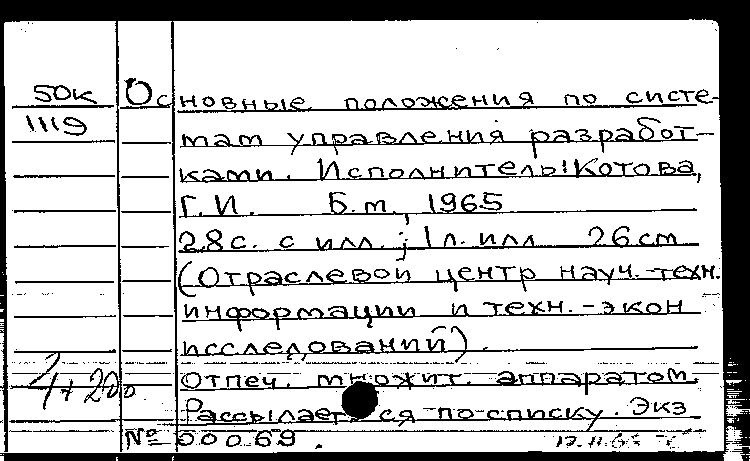 50К Основные положения по систе-
1119 мам управления разработ-
ками. Исполнитель: Котова,
Г. И. Б. м., 1965
28 с. с илл.; 1 л. илл 26 см
(Отраслевой центр науч.-техн.
информации и техн.-экон
исследований).
Отпеч. множит. аппаратом
Рассылается по списку. Экз
№ 00069.